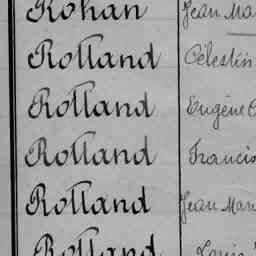 Rohan Jean Ma
Rolland Célestin
Rolland Eugène
Rolland Francis
Rolland Jean Mari
Rolland Louis